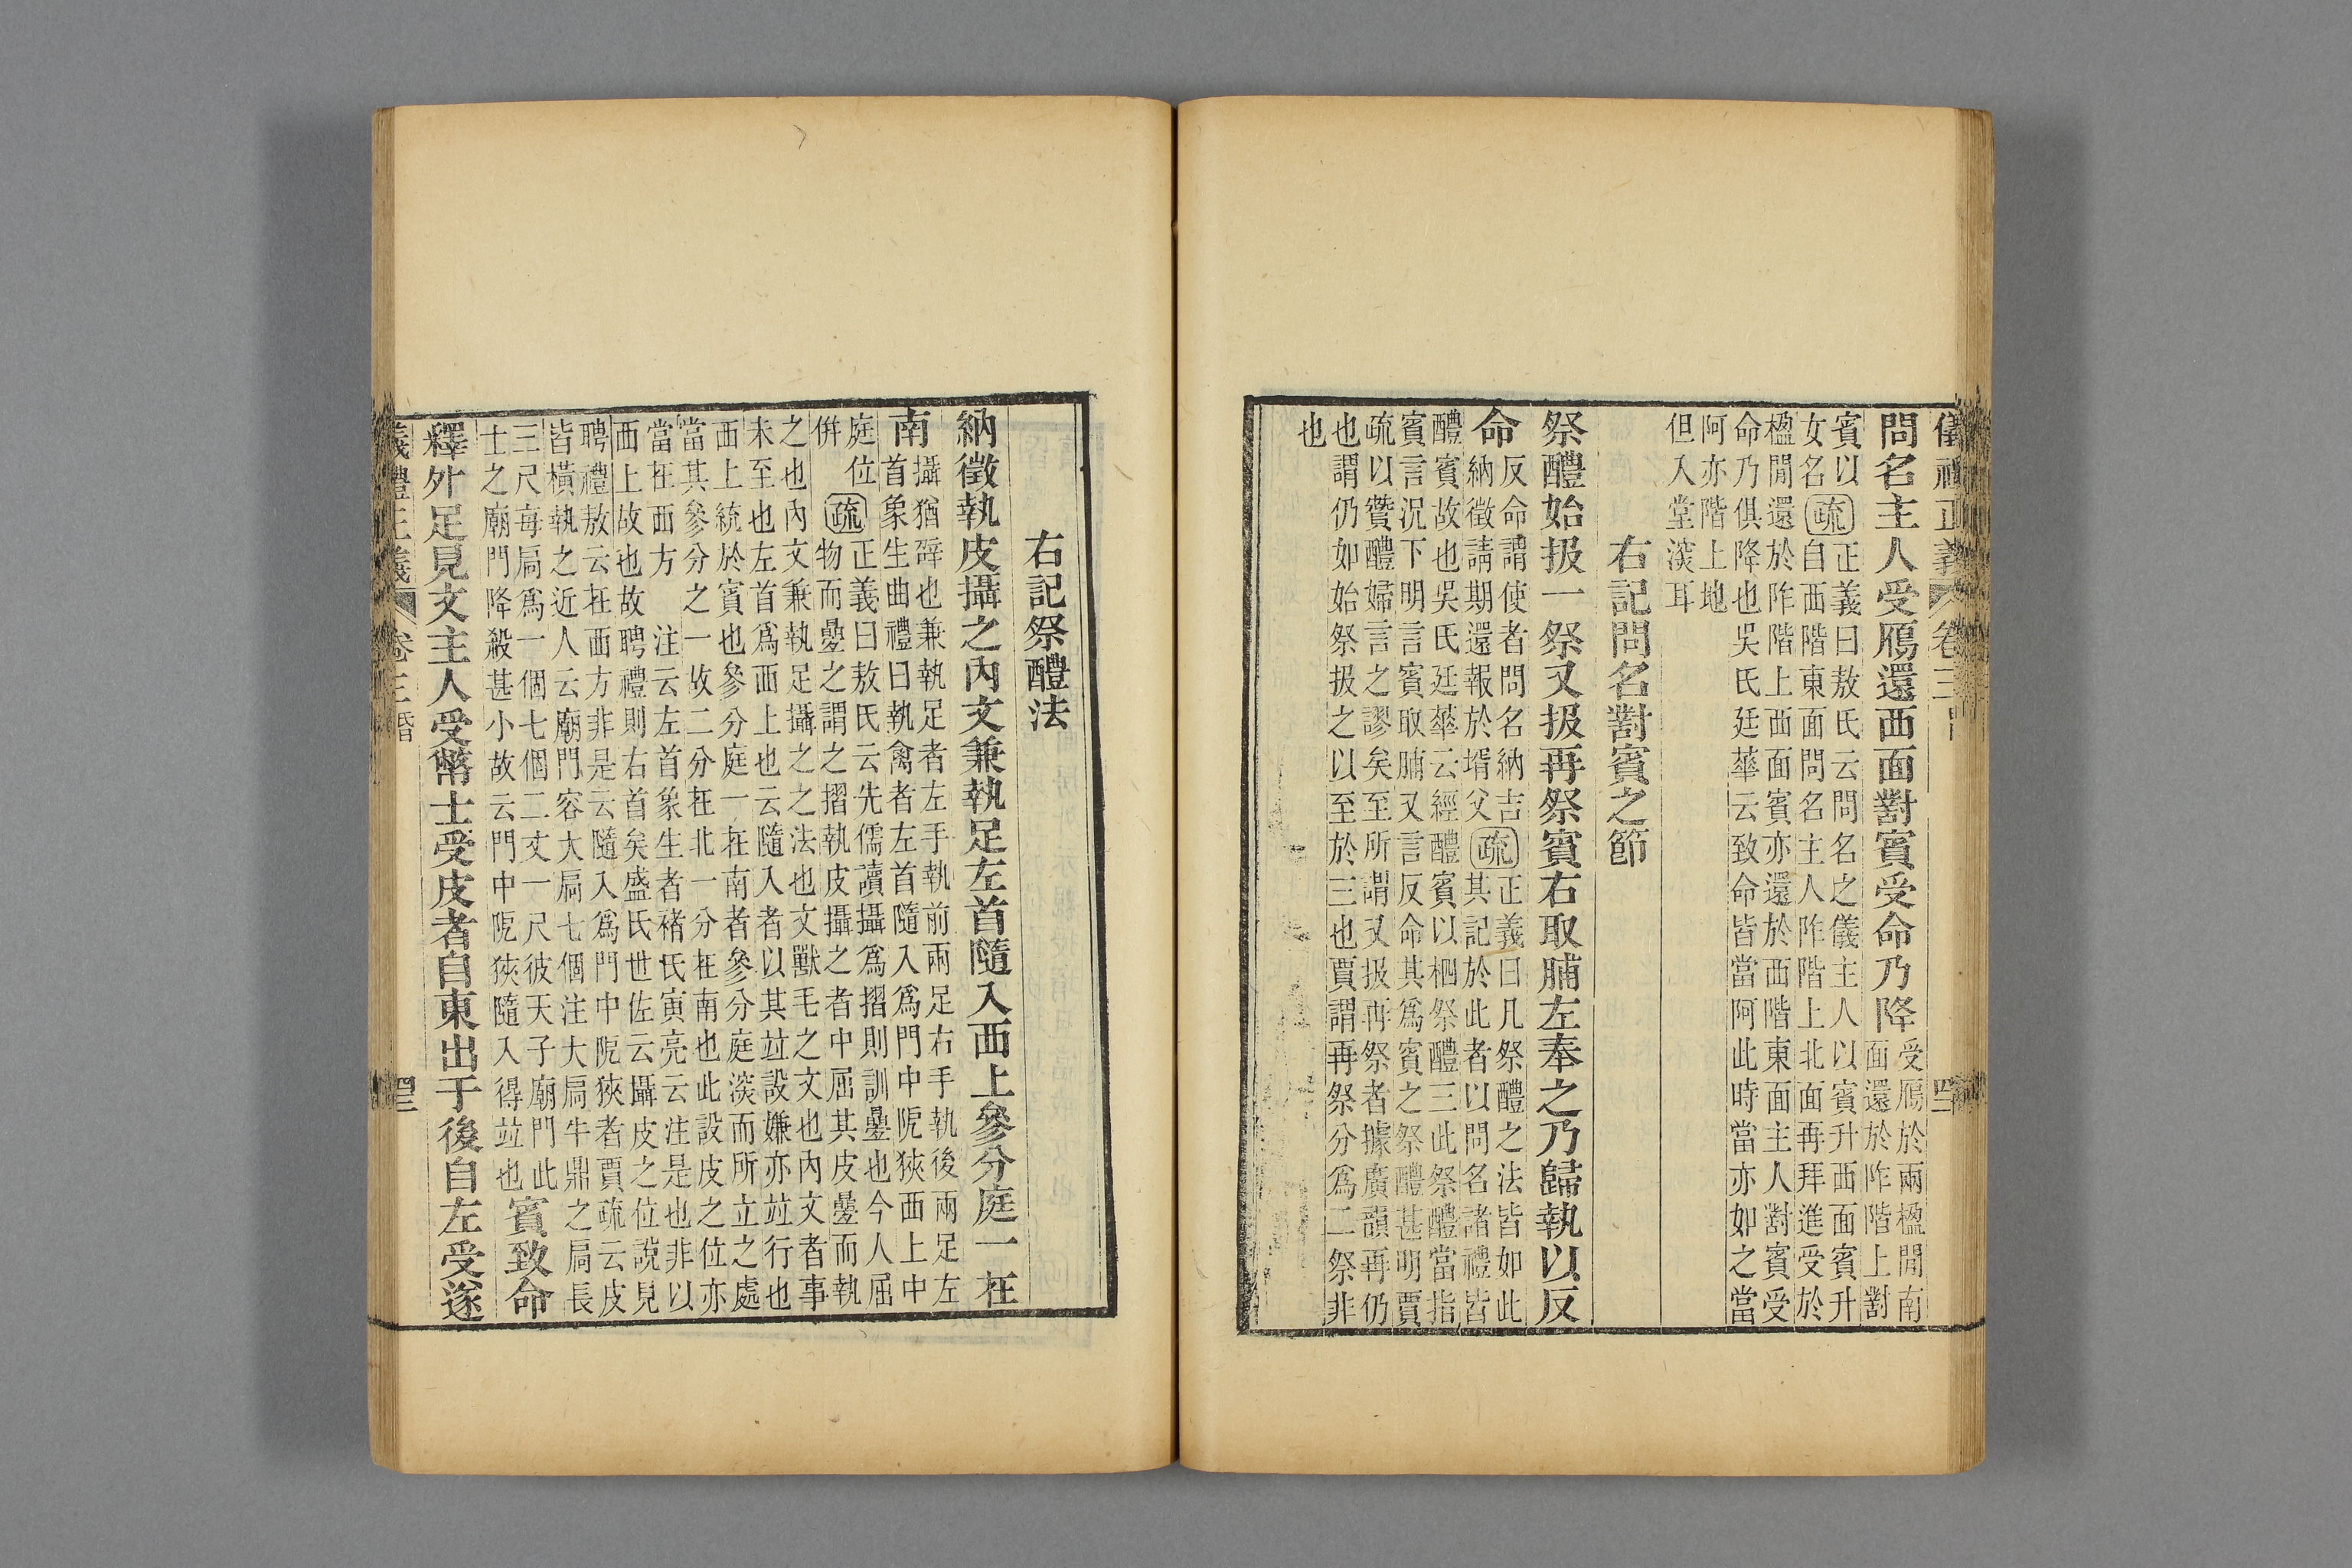 儀禮正義 卷三 四二
問名主人受鴈還西面對賓受命乃降受鴈於兩楹閒南
面還於阼階上對
賓以
女名疏正義曰敖氏云問名之儀主人以賓升西面賓升
自西階東面問名主人阼階上北面再拜進受於
楹閒還於阼階上西面賓亦還於西階東面主人對賓受
命乃俱降也吳氏廷華云致命皆當阿此時當亦如之當
阿亦階上地
但入堂深耳
右記問名對賓之節
祭醴始扱一祭又扱再祭賓右取脯左奉之乃歸執以反
命反命謂使者問名納吉
納徵請期還報於壻父疏正義曰凡祭醴之法皆如此
其記於此者以問名諸禮皆
醴賓故也吳氏廷華云經醴賓以柶祭醴三此祭醴當指
賓言況下明言賓取脯又言反命其爲賓之祭醴甚明賈
疏以贊醴婦言之謬矣至所謂又扱再祭者據廣韻再仍
也謂仍如始祭扱之以至於三也賈謂再祭分爲二祭非
也
右記祭醴法
納徵執皮攝之內文兼執足左首隨入西上參分庭一在
南攝猶辟也兼執足者左手執前兩足右手執後兩足左
首象生曲禮曰執禽者左首隨入爲門中阨狹西上中
庭位
併疏正義曰敖氏云先儒讀攝爲摺則訓疊也今人屈
物而疊之謂之摺執皮攝之者中屈其皮疊而執
之也內文兼執足攝之之法也文獸毛之文也內文者事
未至也左首爲西上也云隨入者以其竝設嫌亦竝行也
西上統於賓也參分庭一在南者參分庭深而所立之處
當其參分之一故二分在北一分在南也此設皮之位亦
當在西方 注云左首象生者褚氏寅亮云注是也非以
西上故也故聘禮則右首矣盛氏世佐云攝皮之位說見
聘禮敖云在西方非是云隨入爲門中阨狹者賈疏云皮
皆橫執之近人云廟門容大扃七個注大扃牛鼎之扃長
三尺每扃爲一個七個二丈一尺彼天子廟門此
士之廟門降殺甚小故云門中阨狹隨入得竝也賓致命
釋外足見文主人受幣士受皮者自東出于後自左受遂
儀禮正義 卷三 昏 四三